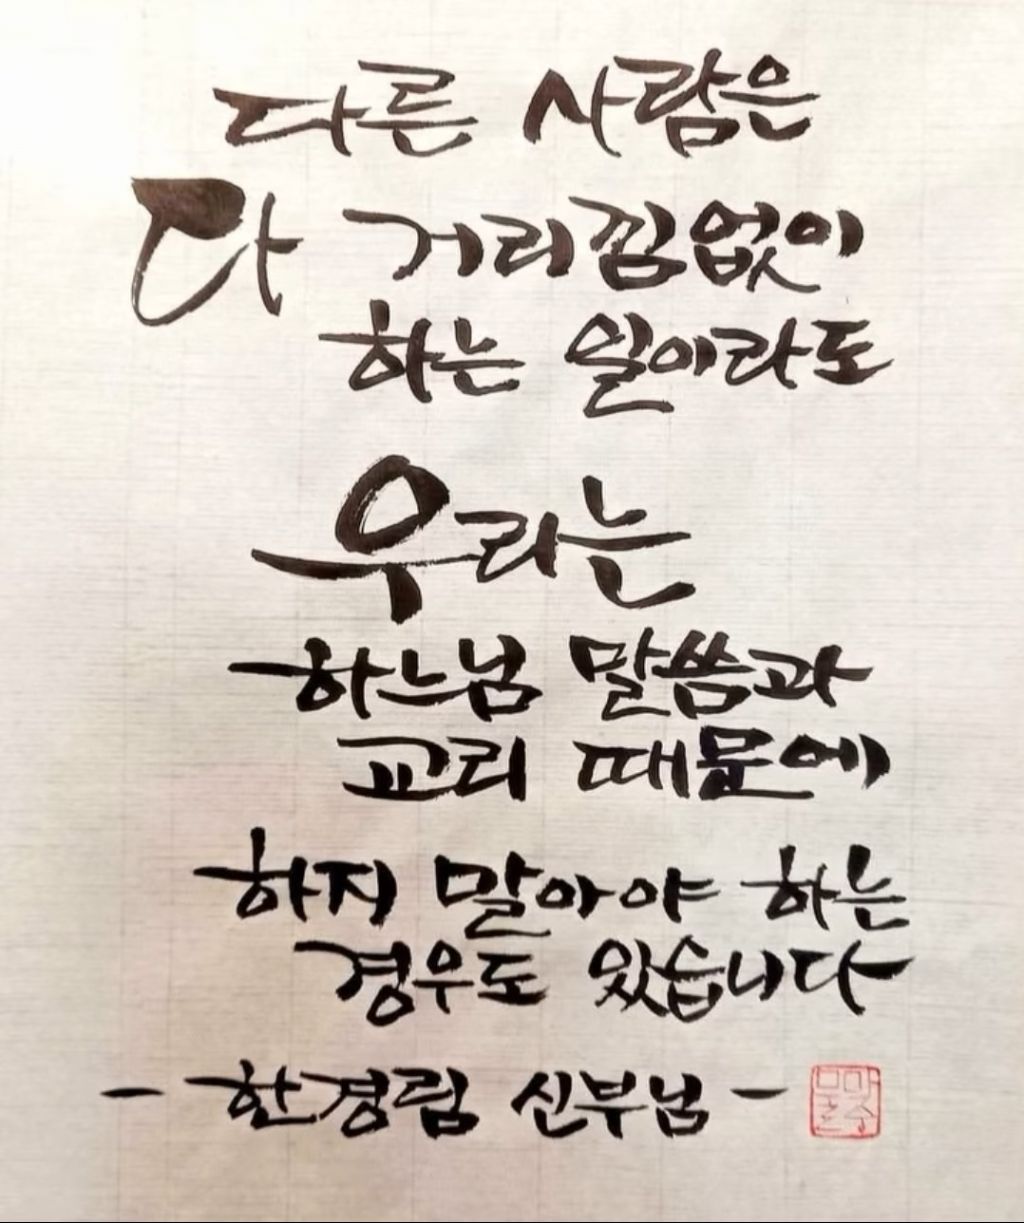 다른 사람은
다 거리낌없이
하는 일이라도
우리는
하느님 말씀과
교리 때문에
하지 말아야 하는
경우도 있습니다
- 한경림 신부님 -